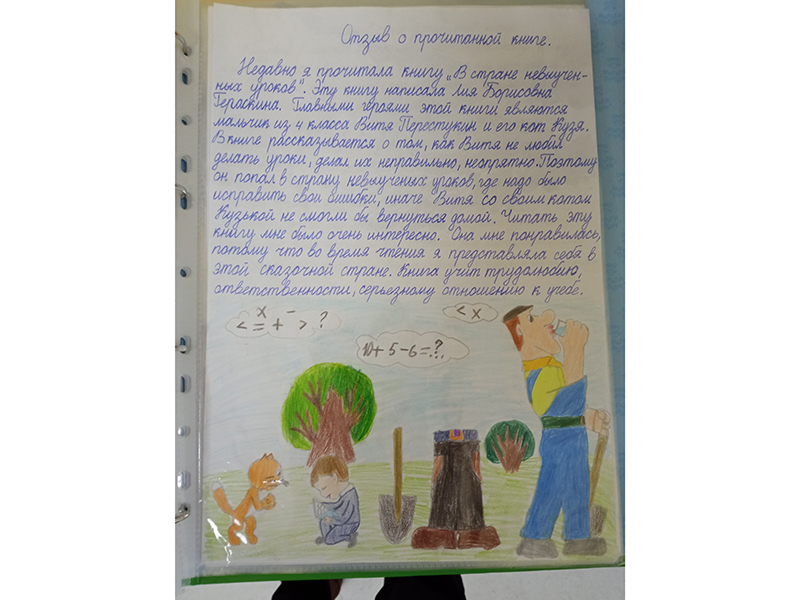 Отзыв о прочитанной книге.
Недавно я прочитала книгу „В стране невыучен-
ных уроков". Эту книгу написала Лия Борисовна
Гераскина. Главными героями этой книги являются
мальчик из 4 класса Витя Перестукин и его кот Кузя.
В книге рассказывается о том, как Витя не любил
делать уроки, делал их неправильно, неопрятно. Поэтому
он попал в страну невыученых уроков, где надо было
исправить свои ошибки, иначе Витя со своим котом
Кузькой не смогли бы вернуться домой. Читать эту
книгу мне было очень интересно. Она мне понравилась,
потому что во время чтения я представляла себя в
этой сказочной стране. Книга учит трудолюбию,
ответственности, серьезному отношению к учебе.
x -
< = + > ?
10+5-6=?..
< x